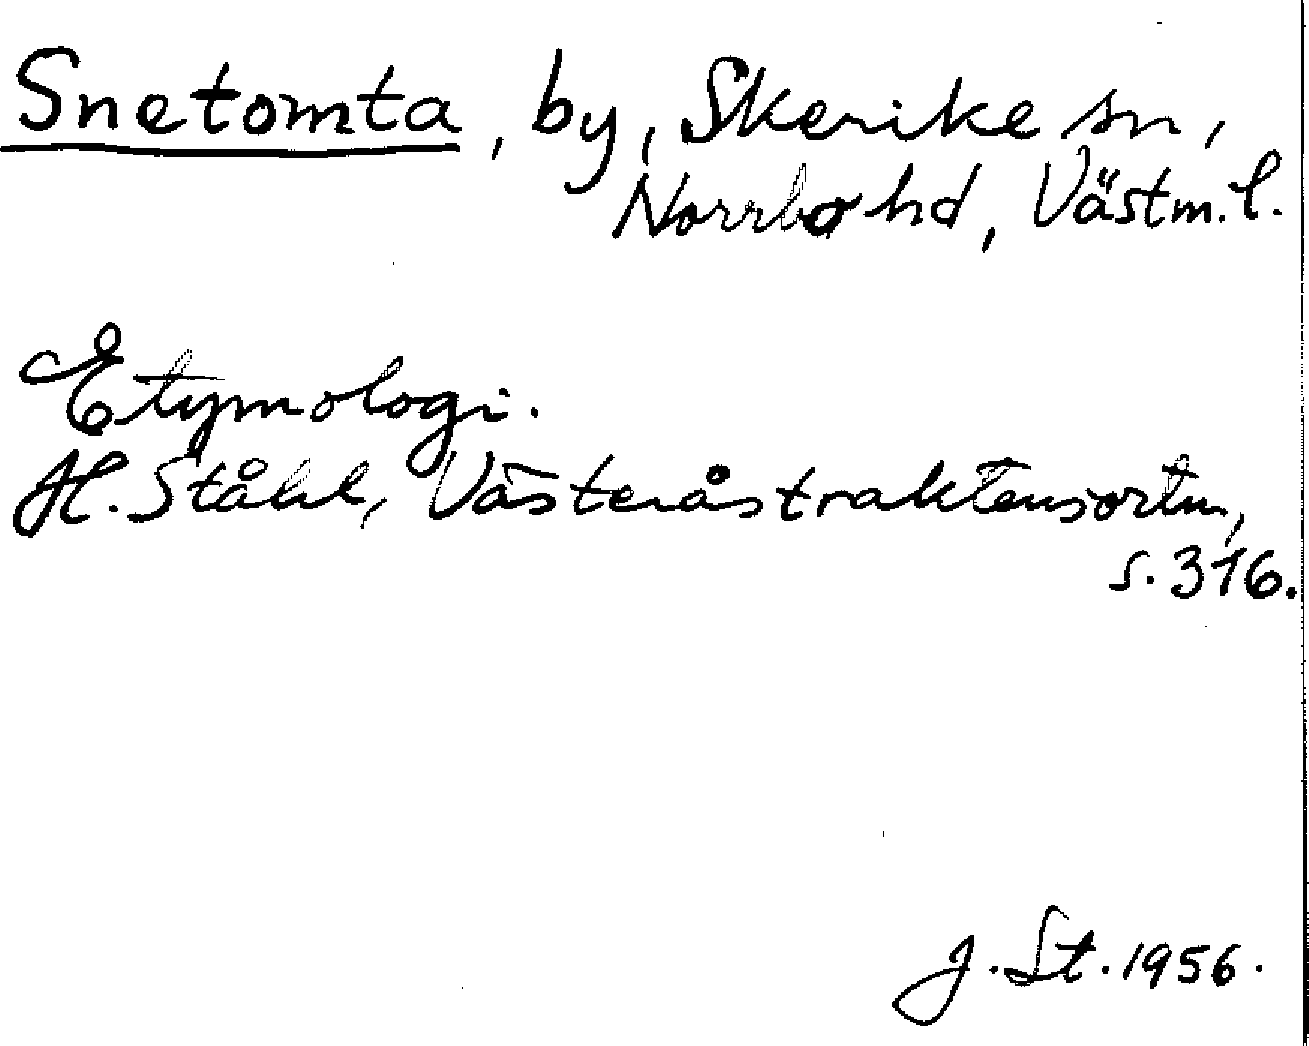 Snetomta, by, Skerike sn,
Norrbo hd, Västm. l.
Etymologi.
H. Ståhl, Västeråstraktens ortn,
s. 316.
J. St. 1956.